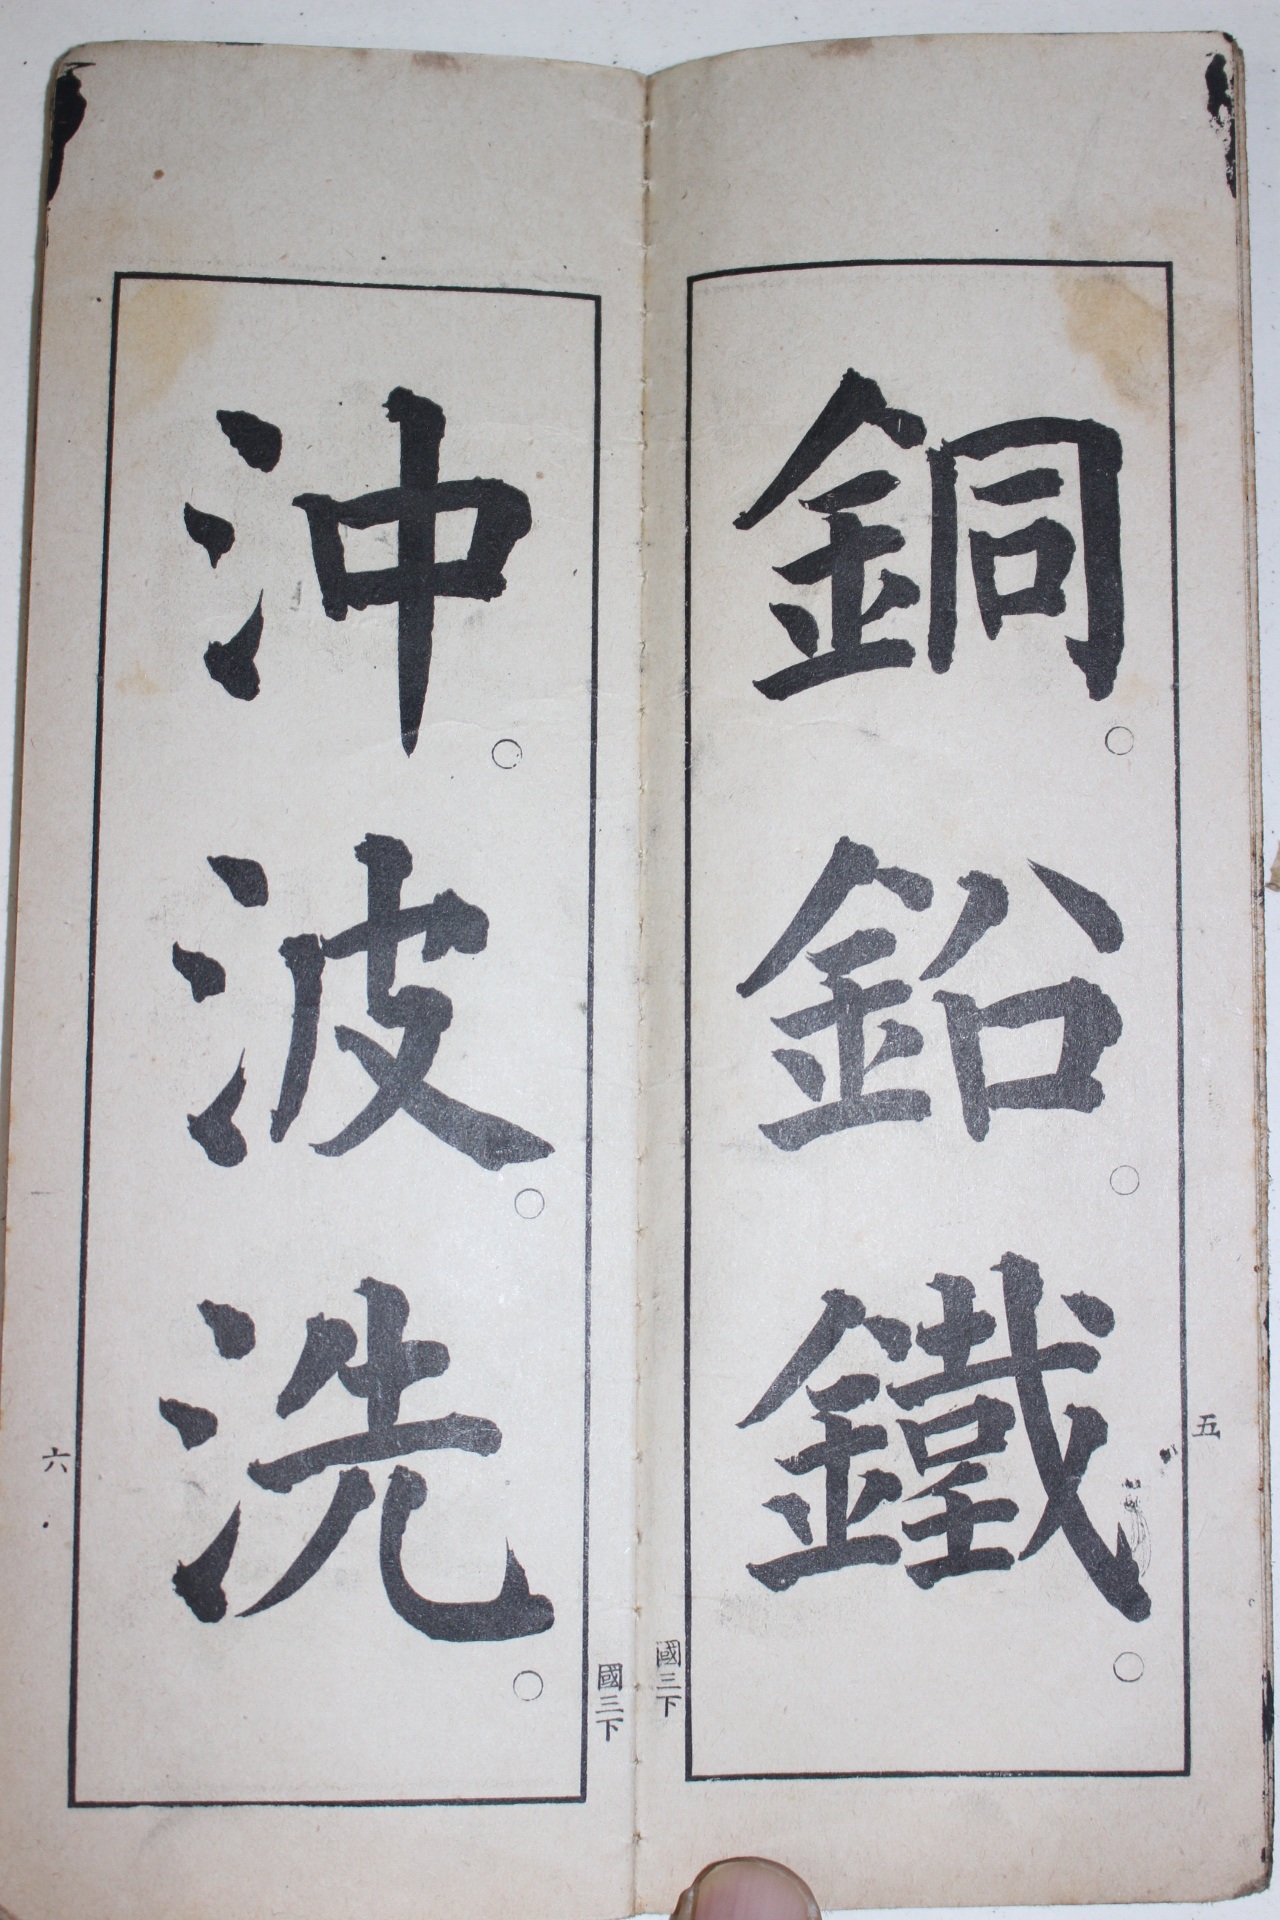 銅。鉛。鐵。
五
國三下
沖。波。洗。
六
國三下